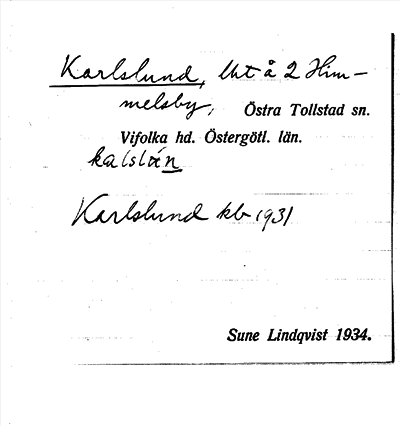 Karlslund, Lht å 2 Him-
melsby, Östra Tollstad sn.
Vifolka hd. Östergötl. län.
Karlslund kb 1931
Sune Lindqvist 1934.